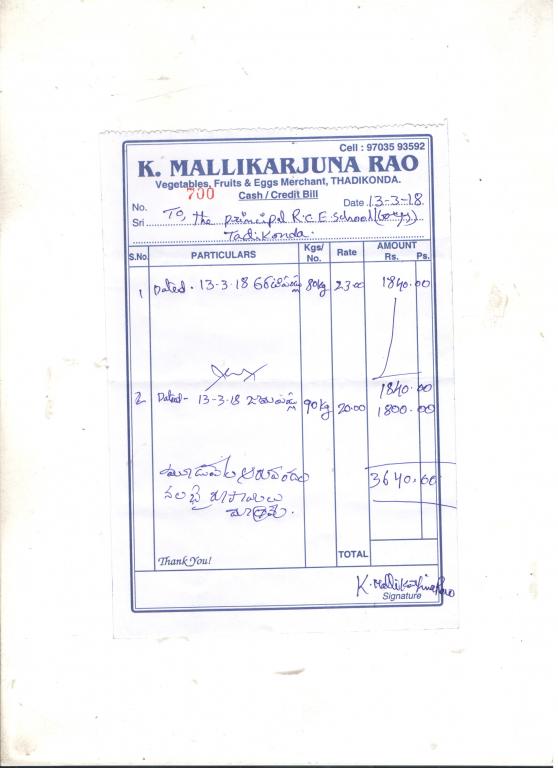 Cell : 97035 93592
K. MALLIKARJUNA RAO
Vegetables, Fruits & Eggs Merchant, THADIKONDA.
700 Cash / Credit Bill
No. Date 13-3-18
Sri To, the principal R.C.E. School (Boys)
Tadikonda.
S.No. PARTICULARS Kgs/ No. Rate AMOUNT Rs. Ps.
1 Dated. 13-3-18 80kg 23.00 1840.00
1840.00
2 Dated- 13-3-18 90kg 20.00 1800.00
మూడువేల ఆరువందల 3640.00
నలభై రూపాయలు
మాత్రమే.
TOTAL
Thank You!
K. Mallikarjuna Rao
Signature